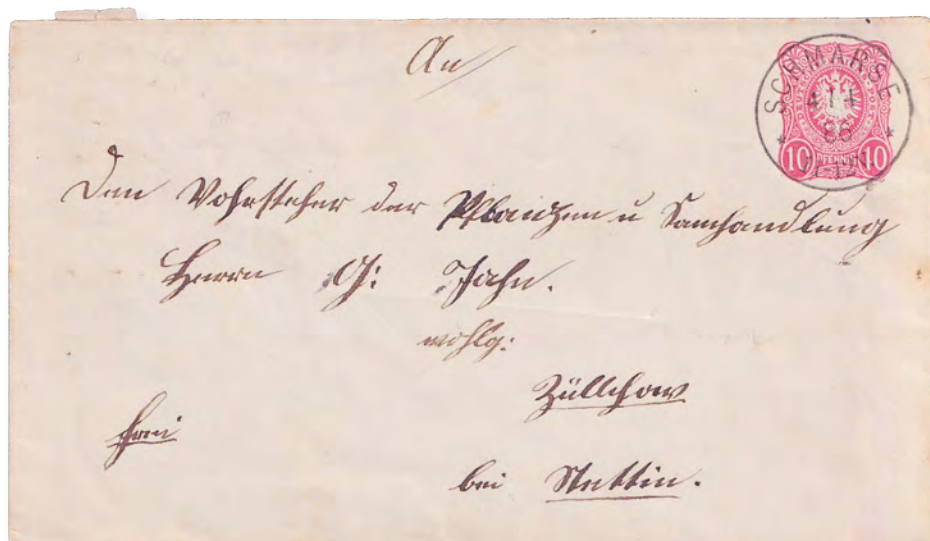 An
SCHMARSE
1 4
86
11-12V
10 PFENNIG 10
Den Vohrsteher der Pflanzen u Samhandlung
Herrn G: Jahn.
wohlg:
Züllchow
frei
bei Stettin.